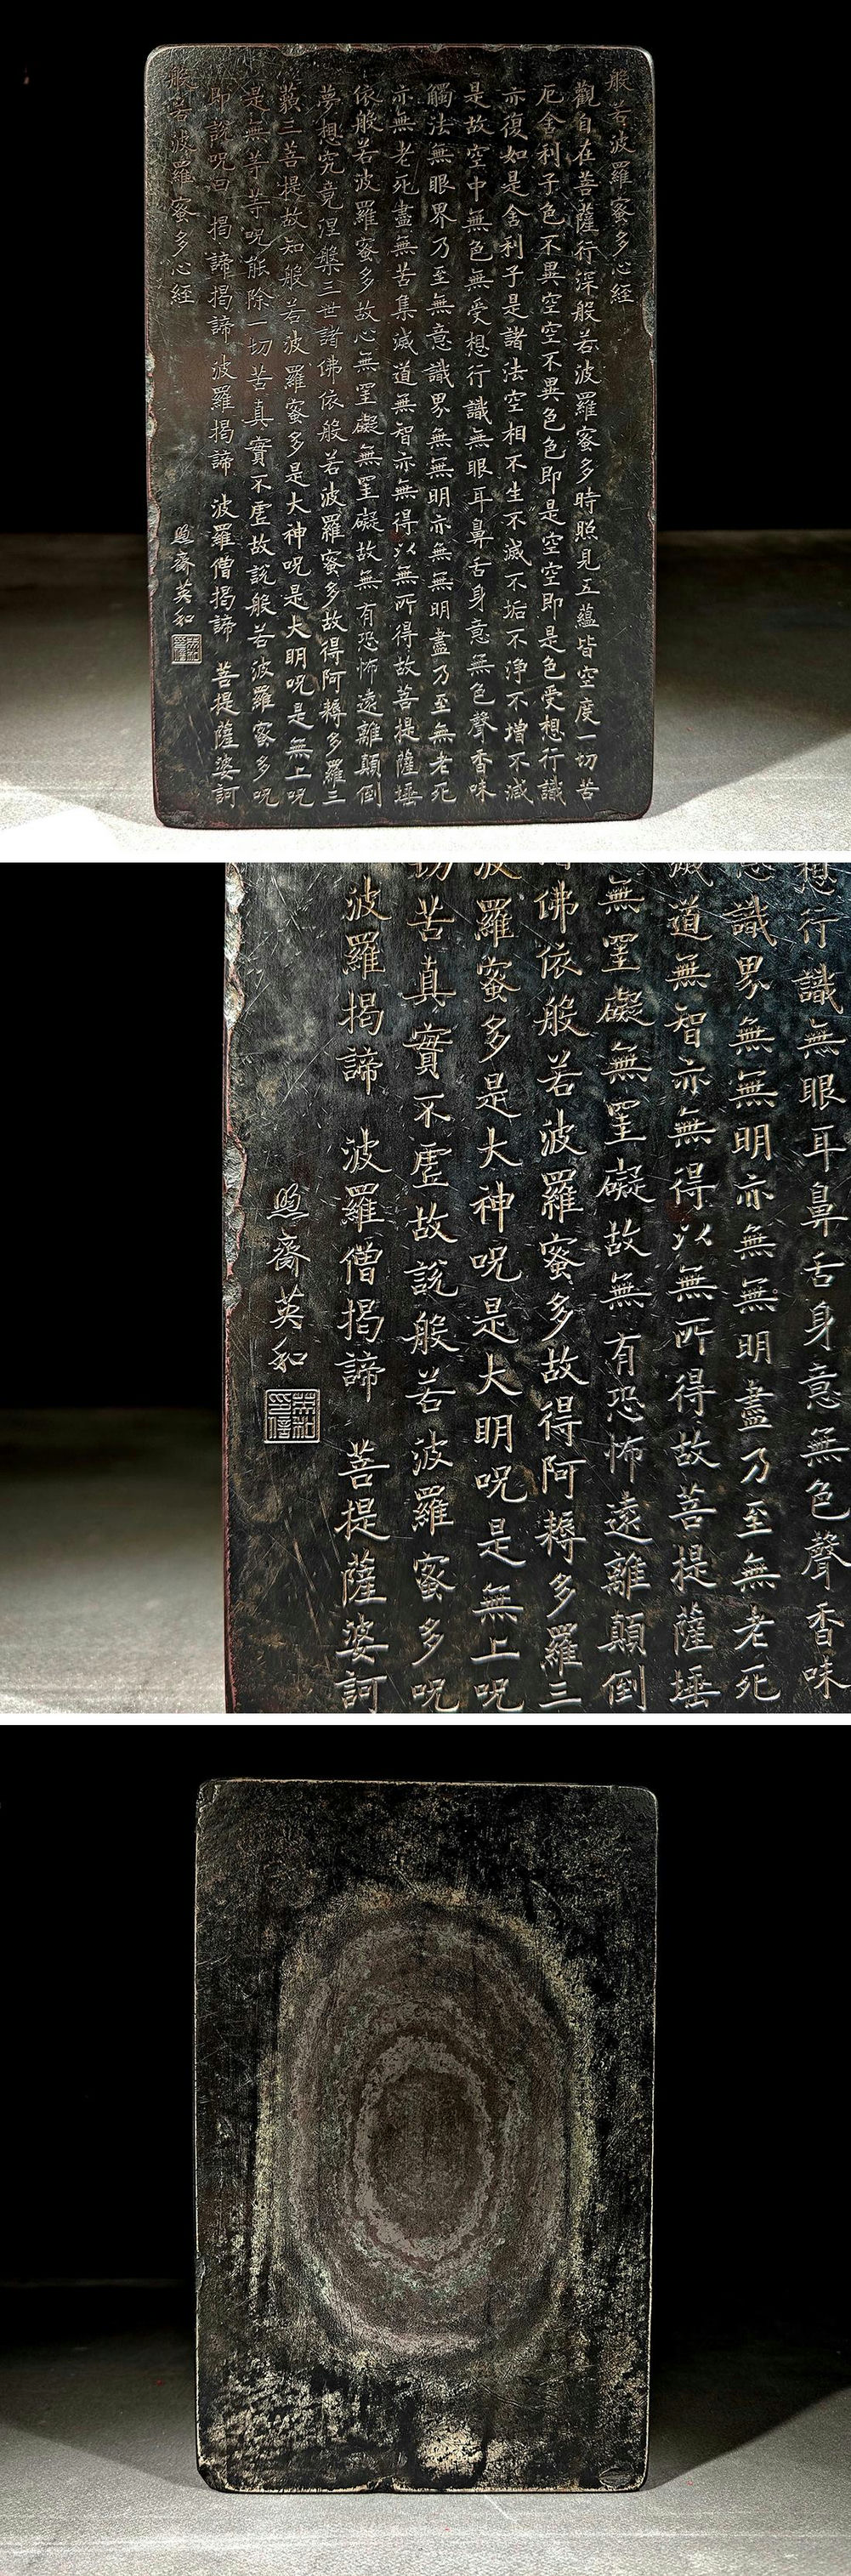 般若波羅蜜多心經
觀自在菩薩行深般若波羅蜜多時照見五蘊皆空度一切苦
厄舍利子色不異空空不異色色即是空空即是色受想行識
亦復如是舍利子是諸法空相不生不滅不垢不淨不增不減
是故空中無色無受想行識無眼耳鼻舌身意無色聲香味
觸法無眼界乃至無意識界無無明亦無無明盡乃至無老死
亦無老死盡無苦集滅道無智亦無得以無所得故菩提薩埵
依般若波羅蜜多故心無罣礙無罣礙故無有恐怖遠離顛倒
夢想究竟涅槃三世諸佛依般若波羅蜜多故得阿耨多羅三
藐三菩提故知般若波羅蜜多是大神呪是大明呪是無上呪
是無等等呪能除一切苦真實不虛故說般若波羅蜜多呪
即說呪曰 揭諦揭諦 波羅揭諦 波羅僧揭諦 菩提薩婆訶
般若波羅蜜多心經
煦齋英和
英和印信
想行識無眼耳鼻舌身意無色聲香味
意識界無無明亦無無明盡乃至無老死
滅道無智亦無得以無所得故菩提薩埵
無罣礙無罣礙故無有恐怖遠離顛倒
諸佛依般若波羅蜜多故得阿耨多羅三
波羅蜜多是大神呪是大明呪是無上呪
切苦真實不虛故說般若波羅蜜多呪
波羅揭諦 波羅僧揭諦 菩提薩婆訶
煦齋英和
英和印信